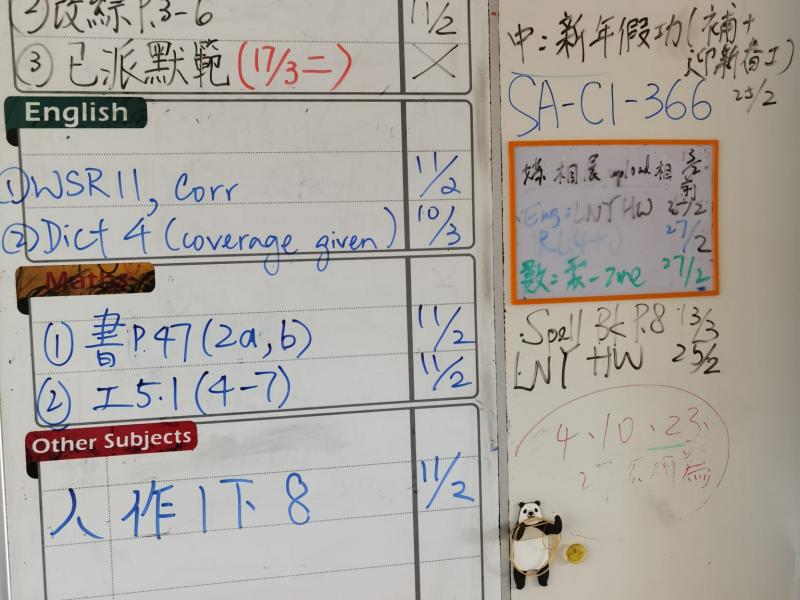 ②改綜P.3-6 11/2
③已派默範(17/3二) ✕
English
①WSR11, Corr 11/2
②Dict 4 (coverage given) 10/3
Maths
①書P.47(2a,b) 11/2
②工5.1(4-7) 11/2
Other Subjects
人作1下8 11/2
中:新年假功(補+
25/2
SA-C1-366
相展upload相 13/2前
Eng: LNY HW 25/2
27/2
數: 27/2
Spell Bk P.8 13/3
LNY HW 25/2
4、10、23、